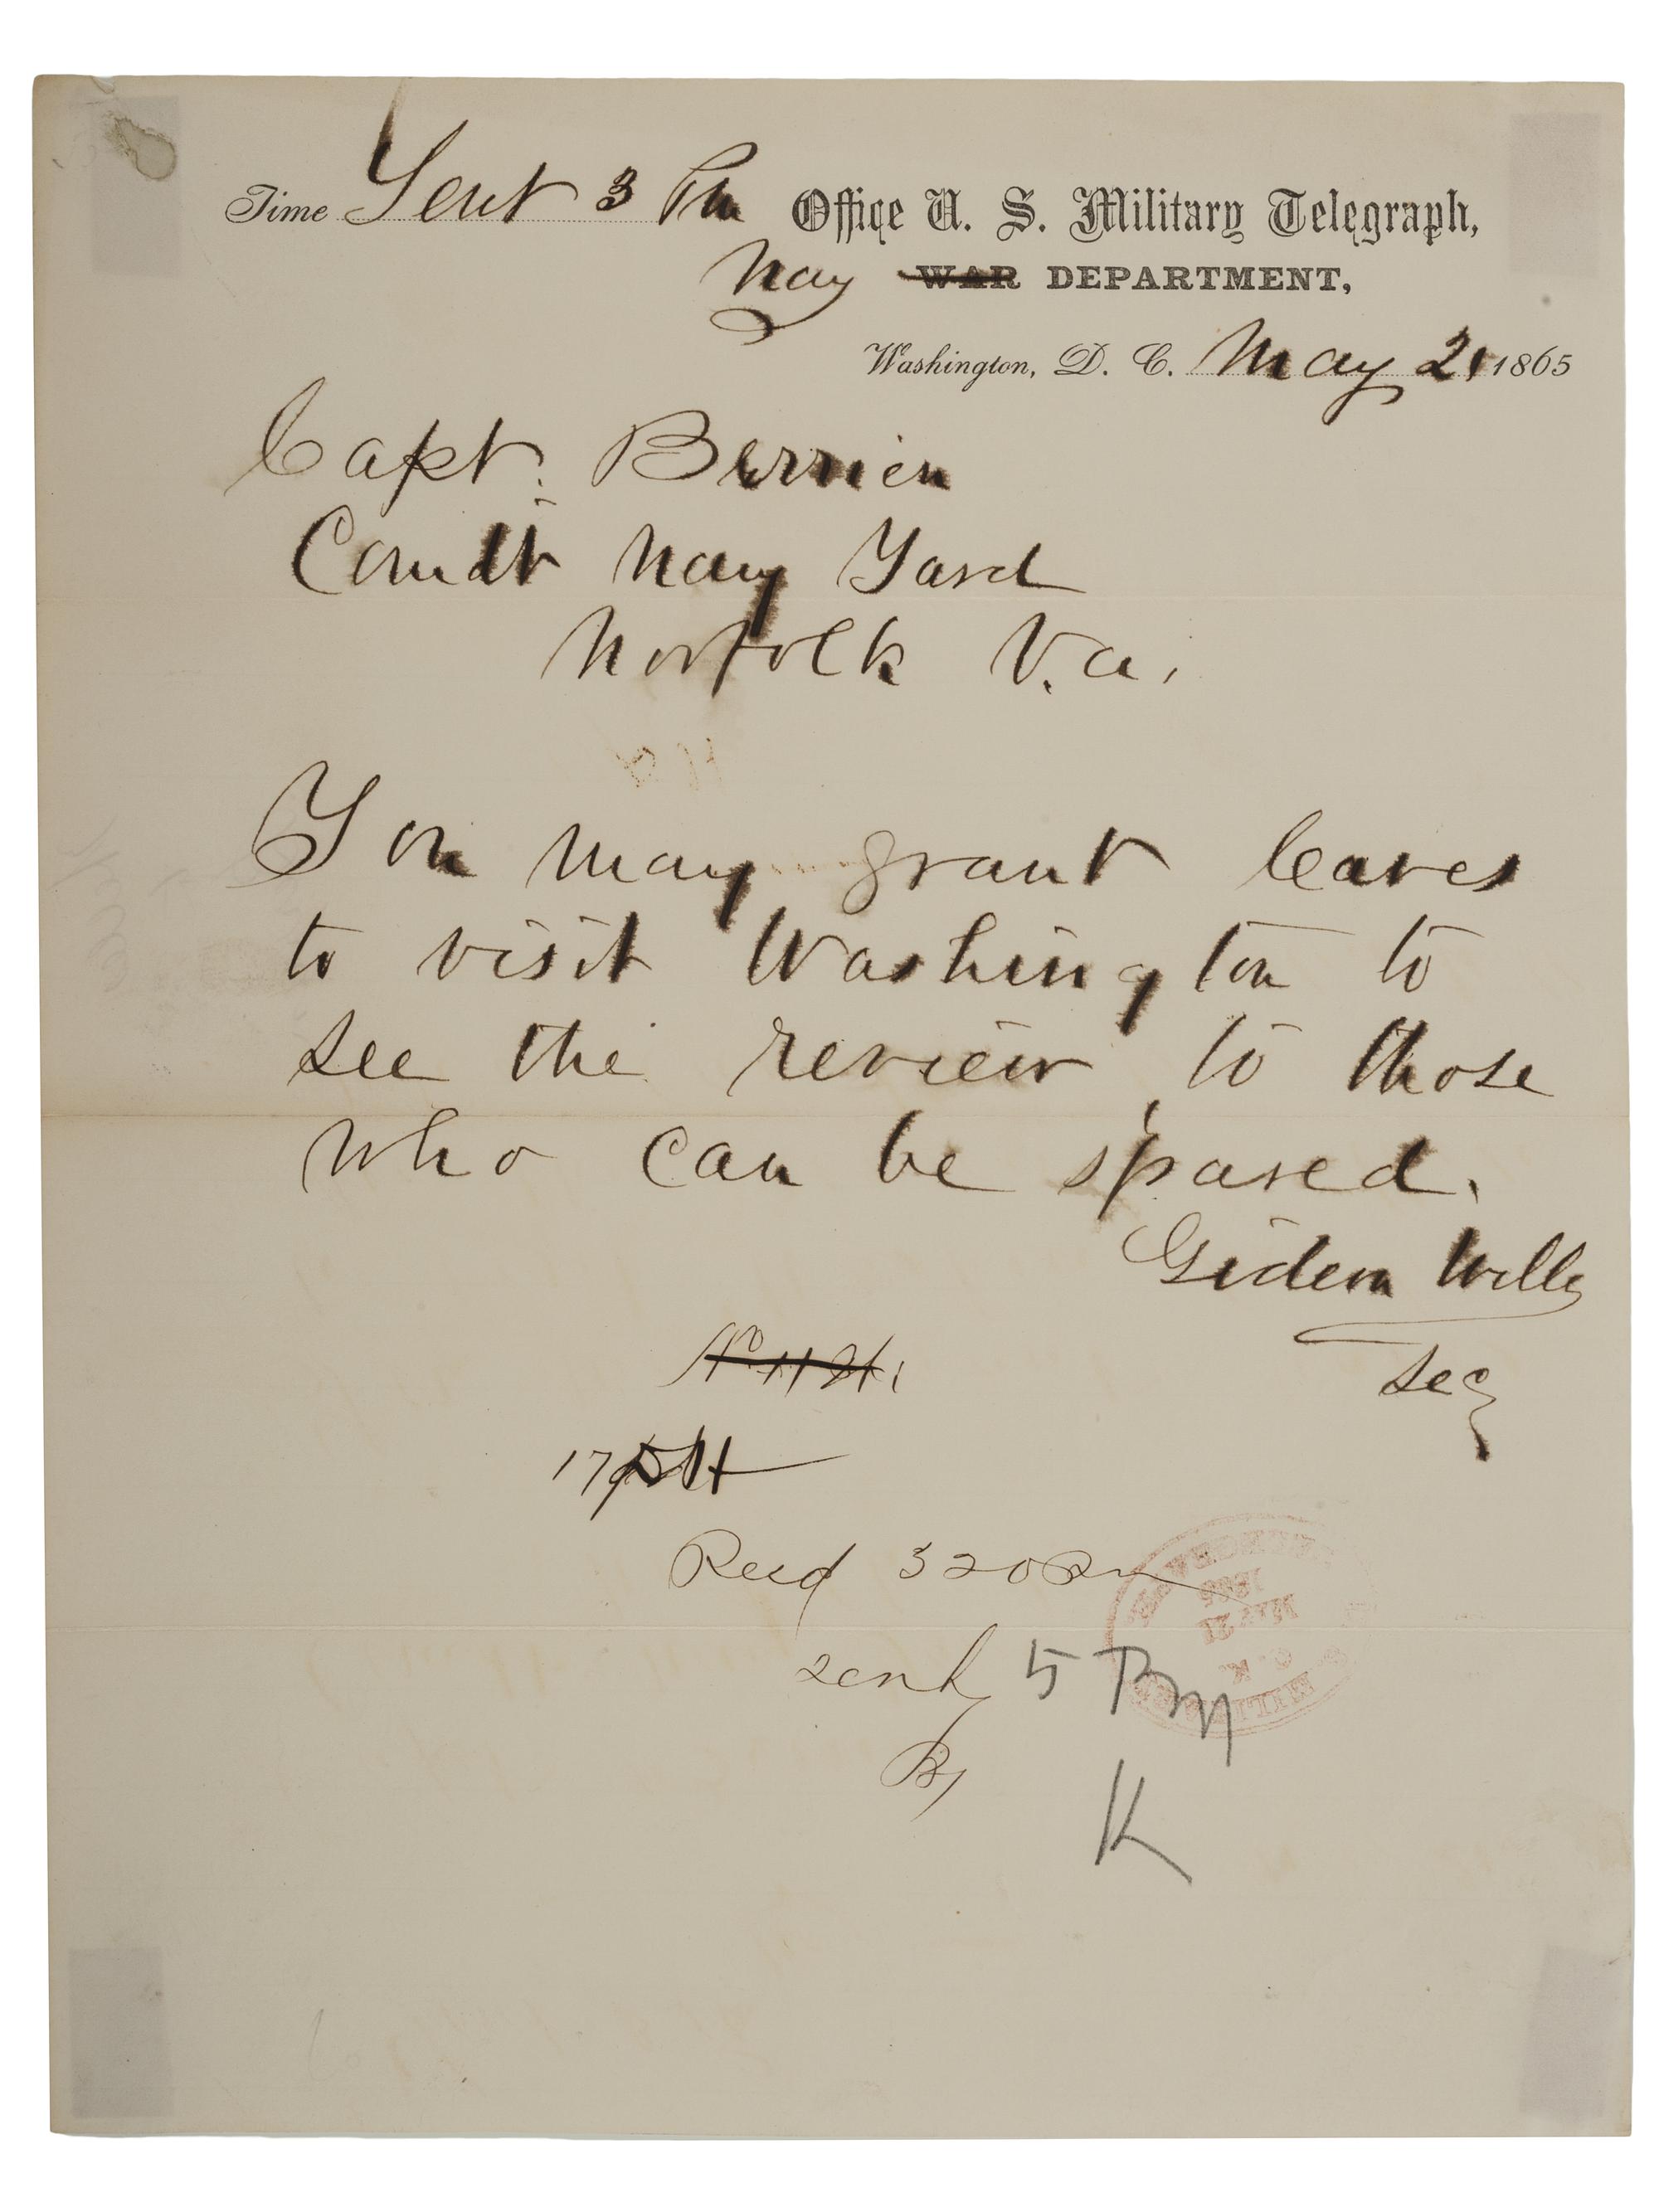 Time Sent 3 Pm Office U. S. Military Telegraph,
Navy WAR DEPARTMENT,
Washington, D. C. May 21 1865
Capt. Berrien
Comdt Navy Yard
Norfolk Va.
You may grant leaves
to visit Washington to
see the review, to those
who can be spared.
Gideon Welles
Secy
17
Recd 320 Pm
sent 5 PM
By K
MAY 21
1865